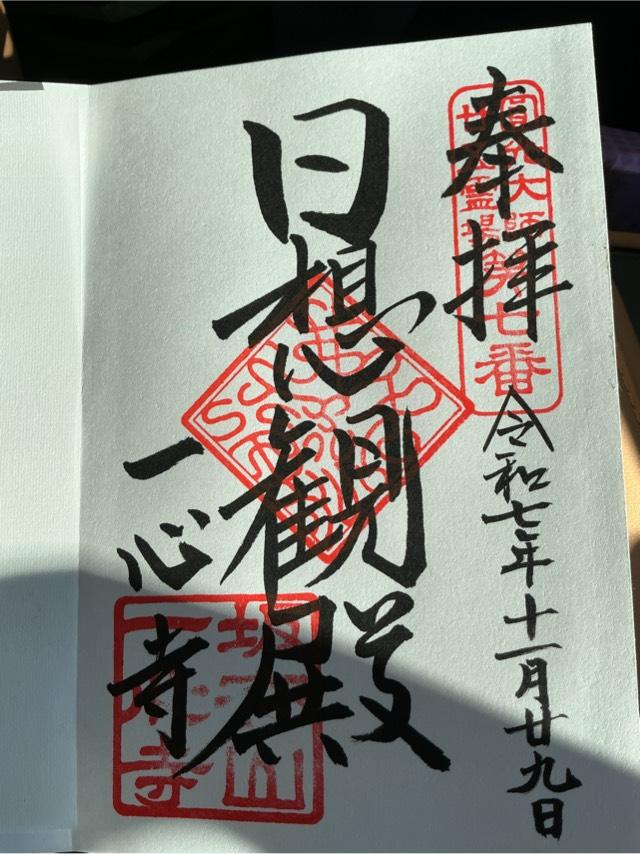 奉拝
圓光大師
廿五霊場
第七番
令和七年十一月廿九日
日想観殿
一心寺
坂松山
一心寺